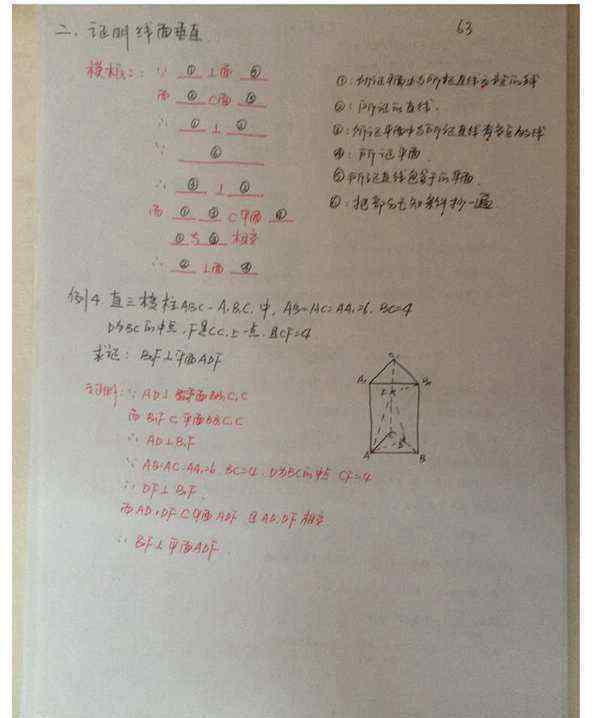 二、证明线面垂直
63
模板2: ∵ ① ⊥面 ⑤
而 ② ⊂面 ⑤
∴ ① ⊥ ②
∵ ⑥
∴ ③ ⊥ ②
而 ① ③ ⊂平面 ④
①与③ 相交
∴ ② ⊥面 ④
①: 所证平面中与所证直线
②: 所证的直线.
③: 所证平面中与所证直线
④: 所证平面.
⑤ 所证直线 的平面.
⑥: 把部分已知条件抄一遍
例4. 直三棱柱ABC-A₁B₁C₁中, AB=AC=AA₁=6. BC=4
D为BC的中点, F是CC₁上一点, 且CF=4
求证: B₁F⊥平面ADF
证明: ∵ AD⊥平面BB₁C₁C
而 B₁F⊂平面BB₁C₁C
∴ AD⊥B₁F
∵ AB=AC=AA₁=6. BC=4. D为BC的中点 CF=4
∴ DF⊥B₁F.
而AD、DF⊂平面ADF 且AD、DF相交
∴ B₁F⊥平面ADF.
C₁
A₁
B₁
F
C
D
A
B